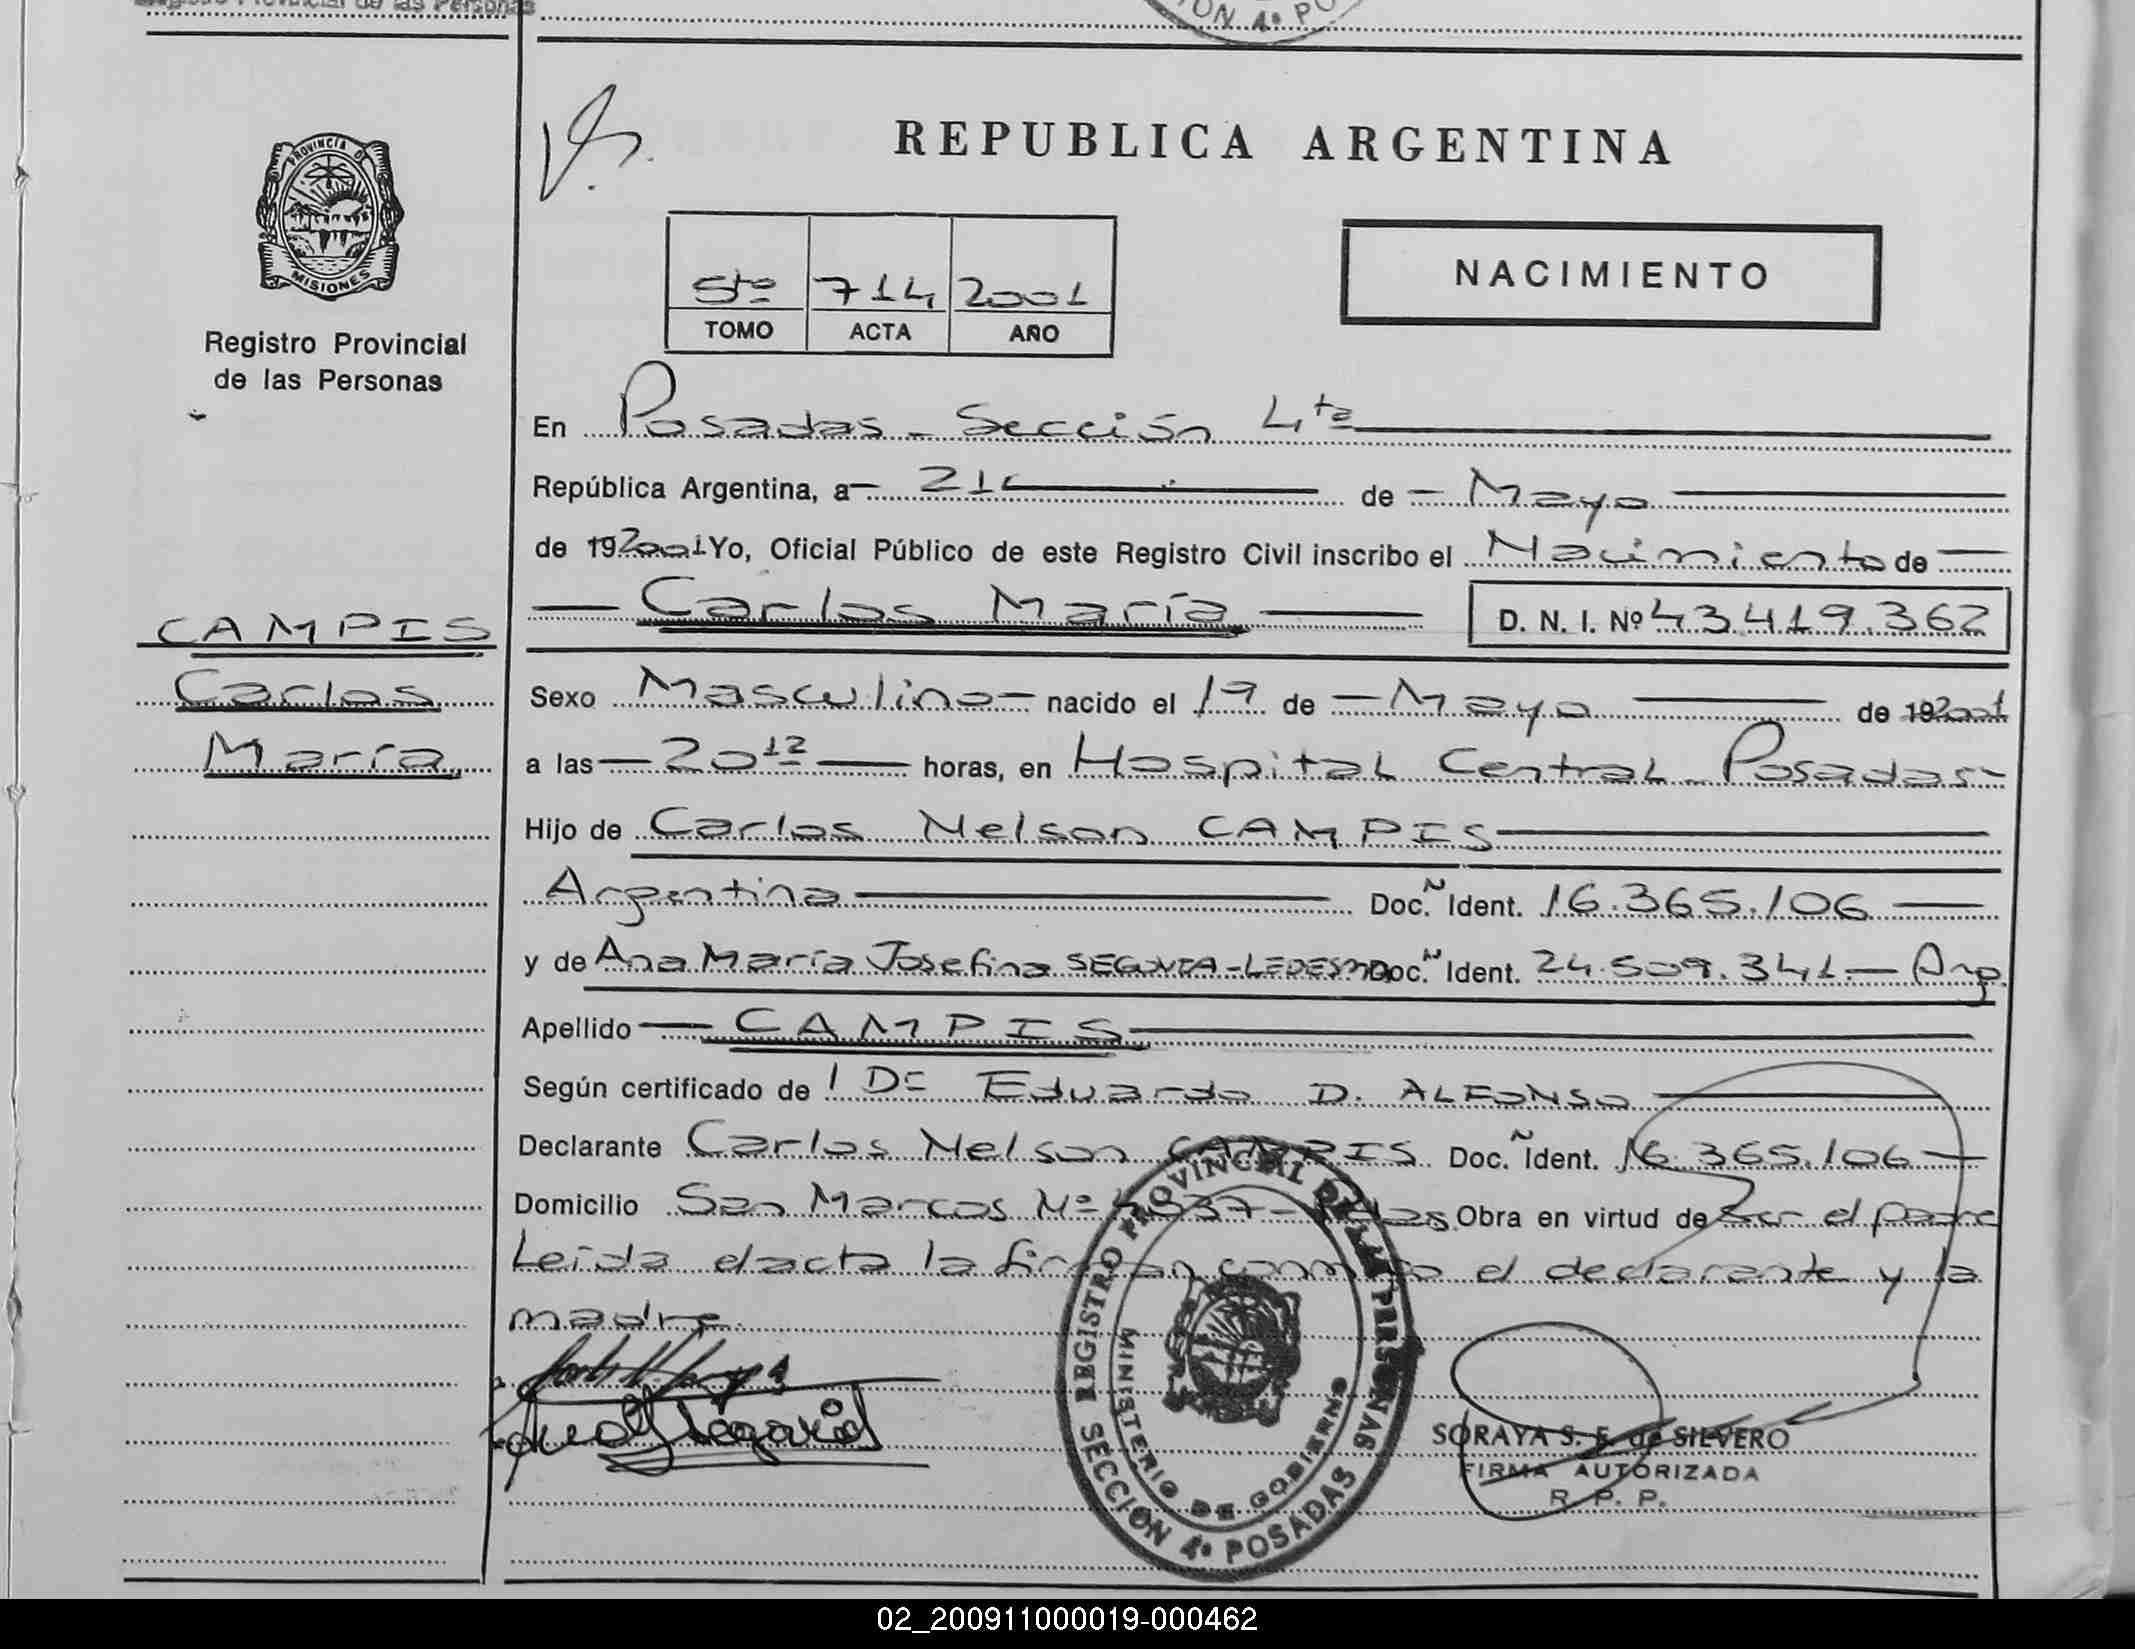 Registro Provincial de las Personas
ON 4ª PO
PROVINCIA DE
MISIONES
Registro Provincial
de las Personas
REPUBLICA ARGENTINA
5to 714 2001
TOMO ACTA AÑO
NACIMIENTO
En Posadas - Sección 4ta
República Argentina, a 21 de Mayo
de 192001 Yo, Oficial Público de este Registro Civil inscribo el Nacimiento de
Carlos María D. N. I. Nº 43.419.362
CAMPIS
Carlos
María
Sexo Masculino nacido el 19 de Mayo de 192001
a las 20 12 horas, en Hospital Central - Posadas
Hijo de Carlos Nelson CAMPIS
Argentina Doc. Ñ Ident. 16.365.106
y de Ana María Josefina SEGOVIA-LEDESMA Doc. Ñ Ident. 24.509.341 - Arg.
Apellido CAMPIS
Según certificado de l Dr Eduardo D. ALFONSO
Declarante Carlos Nelson CAMPIS Doc. Ñ Ident. 16.365.106
Domicilio San Marcos Nº 37 - Obra en virtud de Ser el padre
Leida el acta la firman conmigo el declarante y la
madre.
REGISTRO PROVINCIAL DE LAS PERSONAS
MINISTERIO DE GOBIERNO
SECCION 4ª POSADAS
SORAYA S. F. de SILVERO
FIRMA AUTORIZADA
R. P. P.
02_200911000019-000462